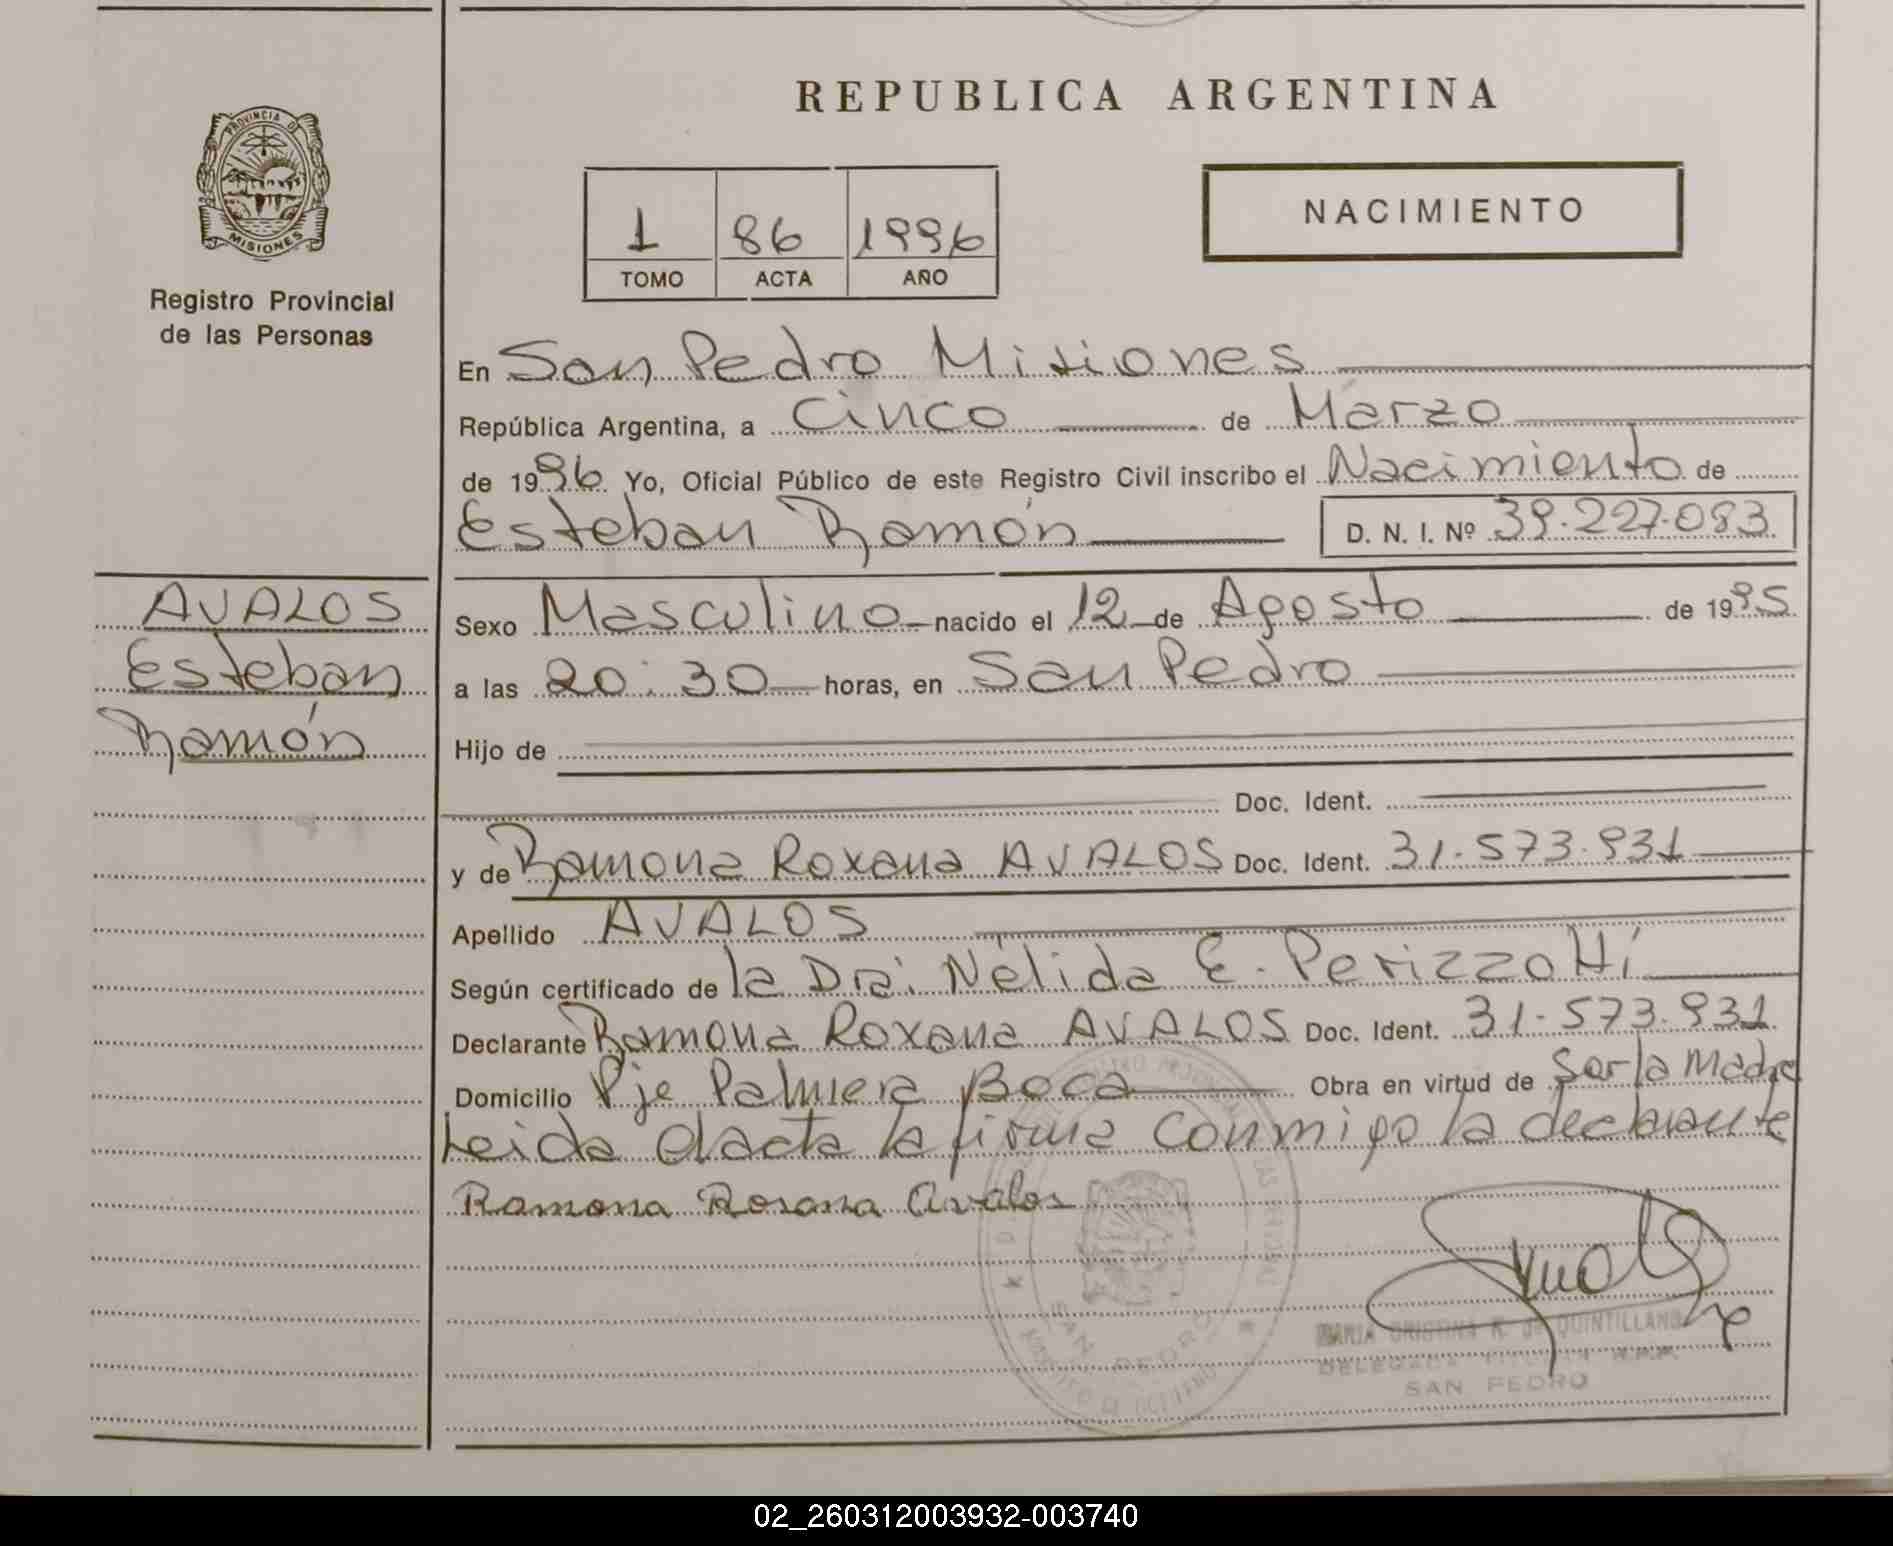 REPUBLICA ARGENTINA
PROVINCIA DE
MISIONES
Registro Provincial
de las Personas
1 86 1996
TOMO ACTA AÑO
NACIMIENTO
En San Pedro Misiones
República Argentina, a cinco de Marzo
de 1996 Yo, Oficial Público de este Registro Civil inscribo el Nacimiento de
Esteban Ramón D. N. I. Nº 39.227.083
AVALOS
Esteban
Ramón
Sexo Masculino nacido el 12 de Agosto de 1995
a las 20:30 horas, en San Pedro
Hijo de
Doc. Ident.
y de Ramona Roxana AVALOS Doc. Ident. 31.573.931
Apellido AVALOS
Según certificado de la Dra. Nélida E. Perizzotti
Declarante Ramona Roxana AVALOS Doc. Ident. 31.573.931
Domicilio Pje Palmera Boca Obra en virtud de Ser la Madre
Leida el acta la firma conmigo la declarante
Ramona Rosana Avalos
MARIA CRISTINA R. de QUINTILLANO
DELEGADA TITULAR R.P.P.
SAN PEDRO
SAN PEDRO
02_260312003932-003740